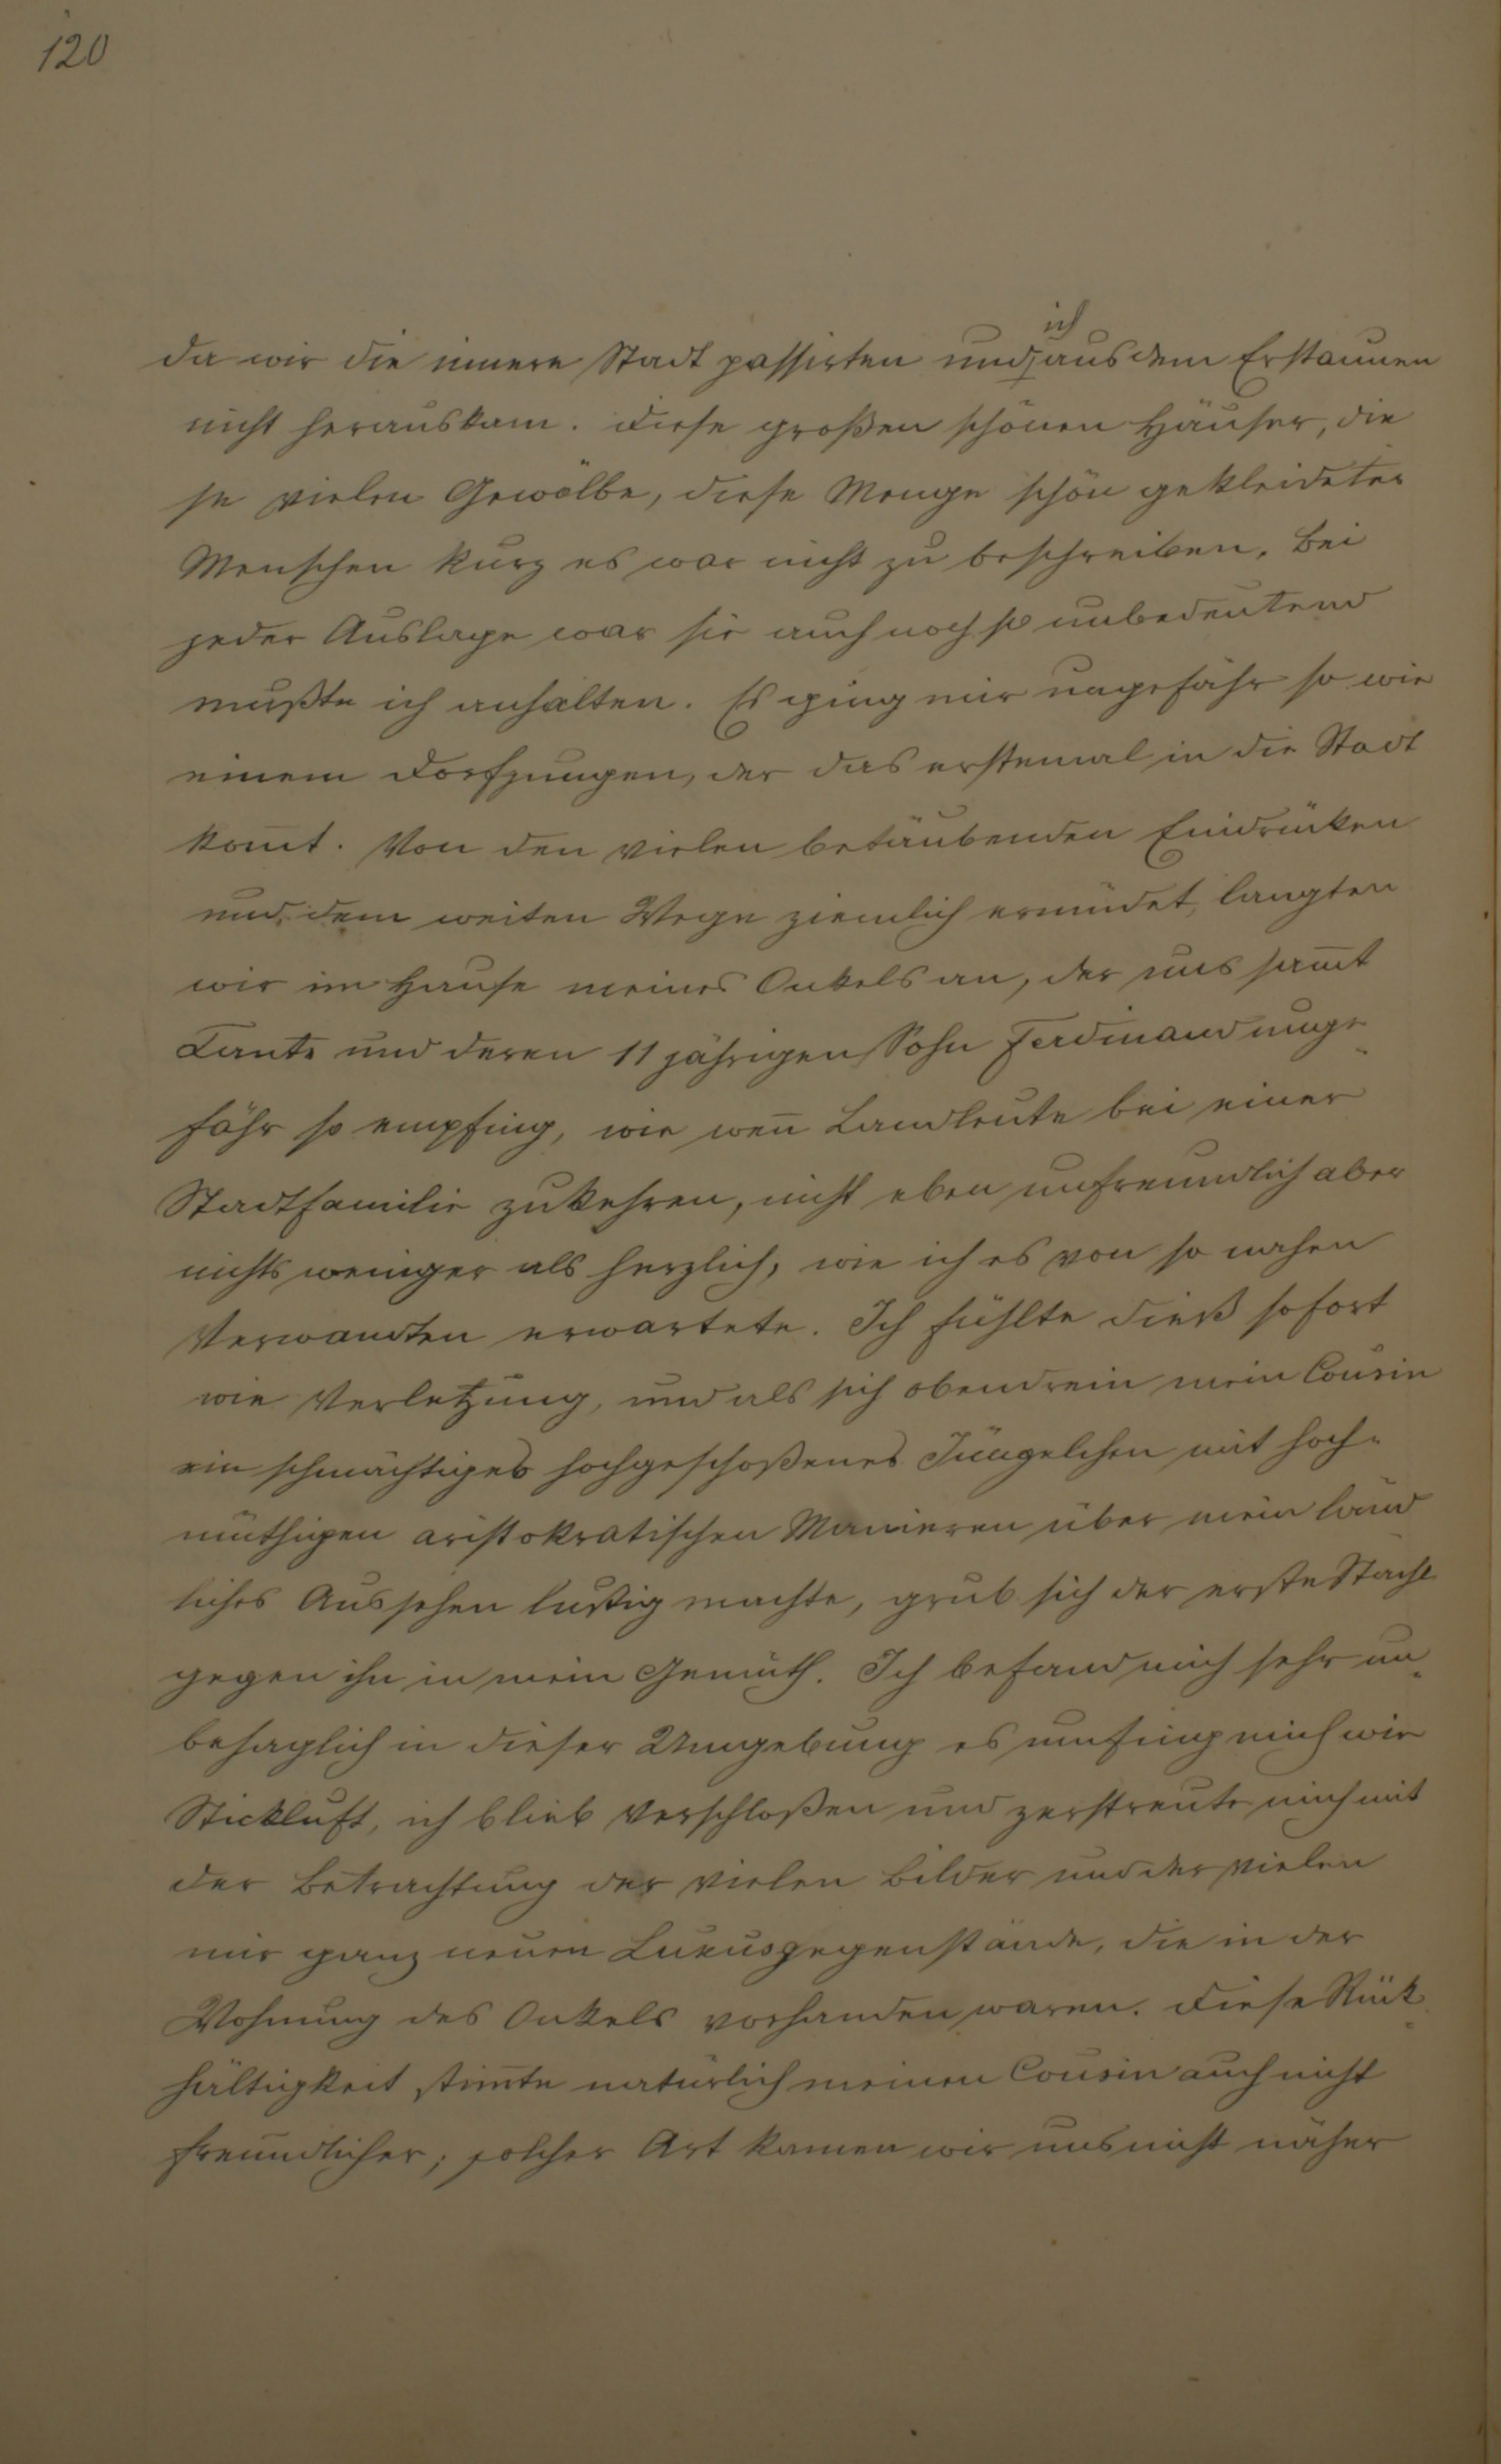 120
da wir die innere Stadt passirten und ich aus dem Erstaunen
nicht herauskam. Diese großen schönen Häuser, die
se vielen Gewölbe, diese Menge schön gekleideter
Menschen kurz es war nicht zu beschreiben. Bei
jeder Auslage war sie auch noch so unbedeutend
mußte ich anhalten. Es ging mir ungefähr so wie
einem Dorfjungen, der das erstemal in die Stadt
kom̄t. Von den vielen betäubenden Eindrücken
und dem weiten Wege ziemlich ermüdet, langten
wir im Hause meines Onkels an, der uns sam̄t
Tante und deren 11 jährigen Sohn Ferdinand unge-
fähr so empfing, wie wen̄ Landleute bei einer
Stadtfamilie zukehren, nicht eben unfreundlich aber
nichts weniger als herzlich, wie ich es von so nahen
Verwandten erwartete. Ich fühlte dieß sofort
wie Verletzung, und als sich obendrein mein Cousin
ein schmächtiges hochgeschoßenes Jüngelchen mit hoch-
müthigen aristokratischen Manieren über mein länd
liches Aussehen lustig machte, grub sich der erste Stachl
gegen ihn in mein Gemüth. Ich befand mich sehr un-
behaglich in dieser Umgebung es umfing mich wie
Stickluft, ich blieb verschloßen und zerstreute mich mit
der Betrachtung der vielen Bilder und der vielen
mir ganz neuen Luxusgegenstände, die in der
Wohnung des Onkels vorhanden waren. Diese Rück-
hältigkeit stim̄te natürlich meinen Cousin auch nicht
freundlicher; solcher Art kamen wir uns nicht näher